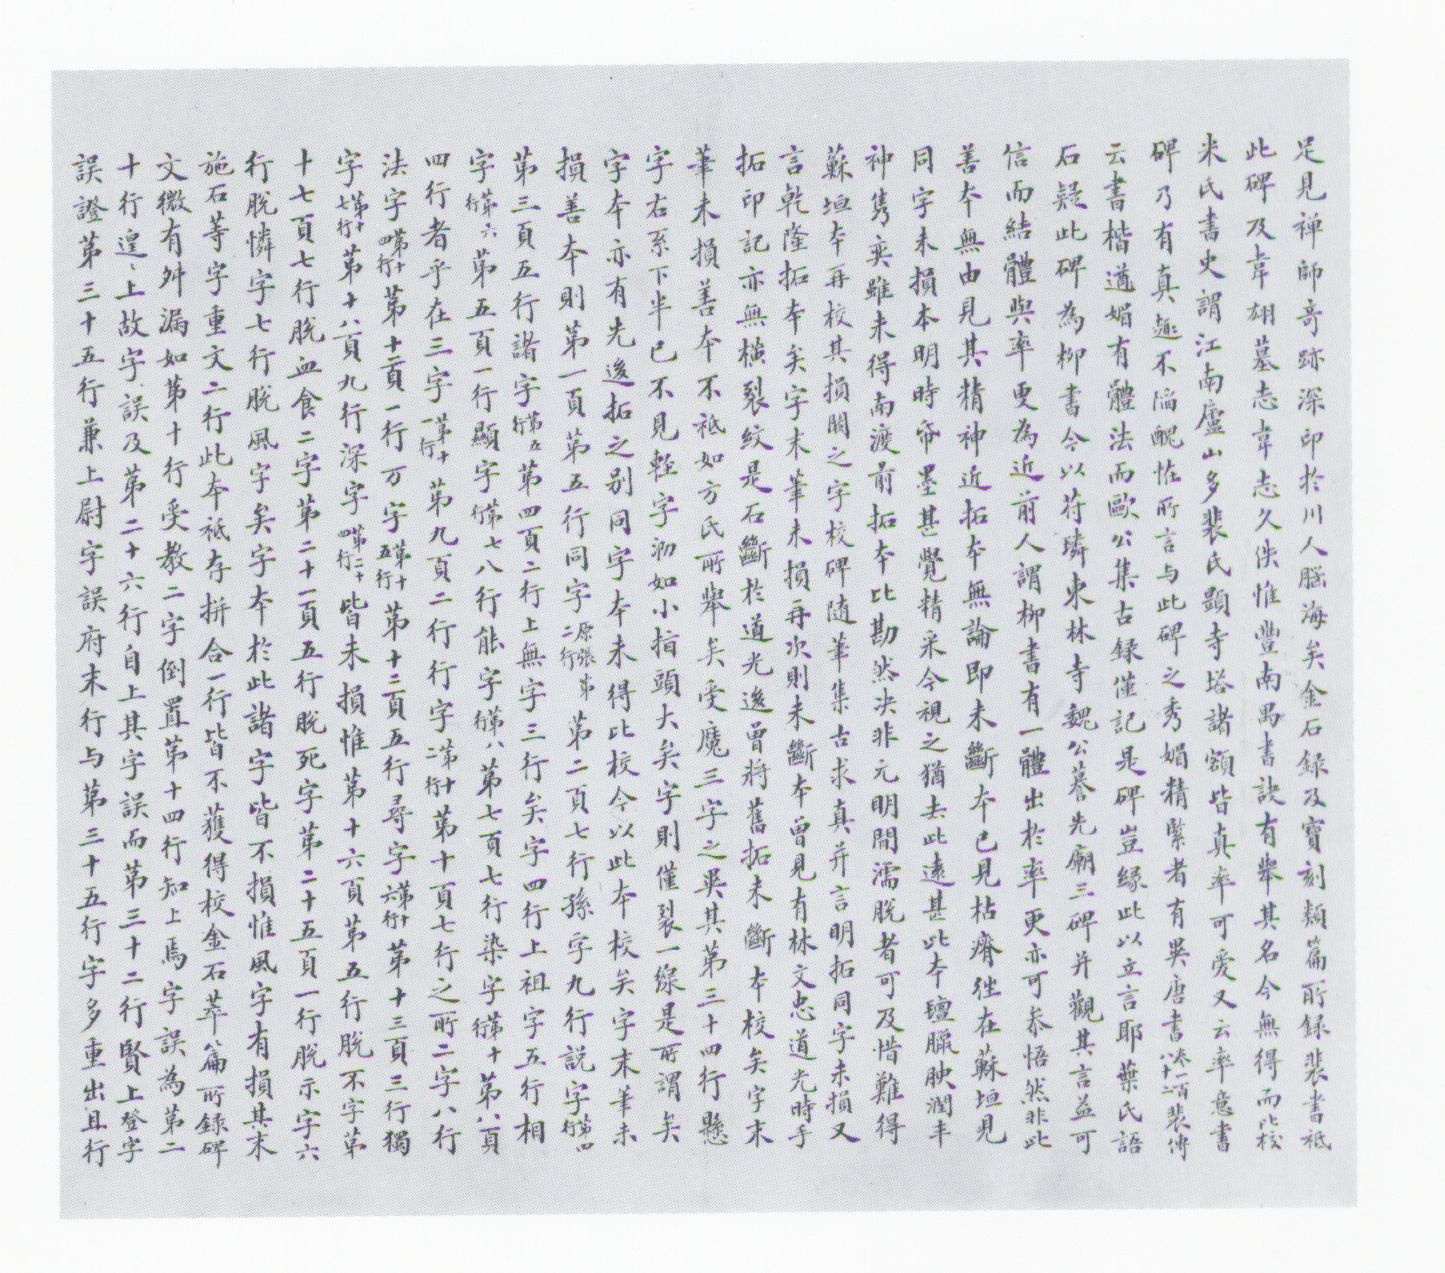 足見禅師奇跡深印於川人腦海矣金石錄及寶刻類篇所錄裴書祗
此碑及韋翃墓志韋志久佚惟豐南禺書訣有舉其名今無得而比校
米氏書史謂江南廬山多裴氏題寺塔諸額皆真率可愛又云率意書
碑乃有真趣不陷醜恠所言与此碑之秀媚精緊者有異唐書卷一百八十二裴傳
云書楷遒媚有體法而歐公集古錄僅記是碑豈緣此以立言耶葉氏語
石疑此碑為柳書今以苻璘東林寺魏公墓先廟三碑并觀其言益可
信而結體與率更為近前人謂柳書有一體出於率更亦可恭悟然非此
善本無由見其精神近拓本無論即未斷本已見枯瘠往在蘇垣見
同字未損本明時帝墨甚覺精采今視之猶去此遠甚此本璮臘腴潤丰
神雋奕雖未得南渡前拓本比勘然决非元明間濡脫者可及惜難得
蘇垣本再校其損闕之字校碑随筆集古求真并言明拓同字未損又
言乾隆拓本矣字末筆未損再次則未斷本曾見有林文忠道光時手
拓印記亦無橫裂紋是石斷於道光後曾將舊拓未斷本校矣字末
筆未損善本不祗如方氏所舉矣受魔三字之異其第三十四行懸
字右系下半已不見輕字泐如小指頭大矣字則僅裂一線是所謂矣
字本亦有先後拓之别同字本未得比校今以此本校矣字末筆未
損善本則第一頁第五行同字原張第二行第二頁七行孫字九行説字第四行
第三頁五行諸字第五行第四頁二行上無字三行矣字四行上祖字五行相
字第六行第五頁一行顯字第七行八行能字第八行第七頁七行染字第十行第八頁
四行者乎在三字第十一行第九頁二行行字第十二行第十頁七行之所二字八行
法字第十四行第十二頁一行万字第十五行第十三頁五行尋字第十六行第十三頁三行獨
字第十七行第十八頁九行深字第二十四行皆未損惟第十六頁第五行脫不字第
十七頁七行脫血食二字第二十一頁五行脫死字第二十五頁一行脫示字六
行脫憐字七行脫風字矣字本於此諸字皆不損惟風字有損其末
施石等字重文二行此本祗存拼合一行皆不獲得校金石萃篇所錄碑
文微有舛漏如第十行受教二字倒置第十四行知上焉字誤為第二
十行遑〻上故字誤及第二十六行自上其字誤而第三十二行賢上登字
誤證第三十五行兼上尉字誤府末行与第三十五行字多重出且行